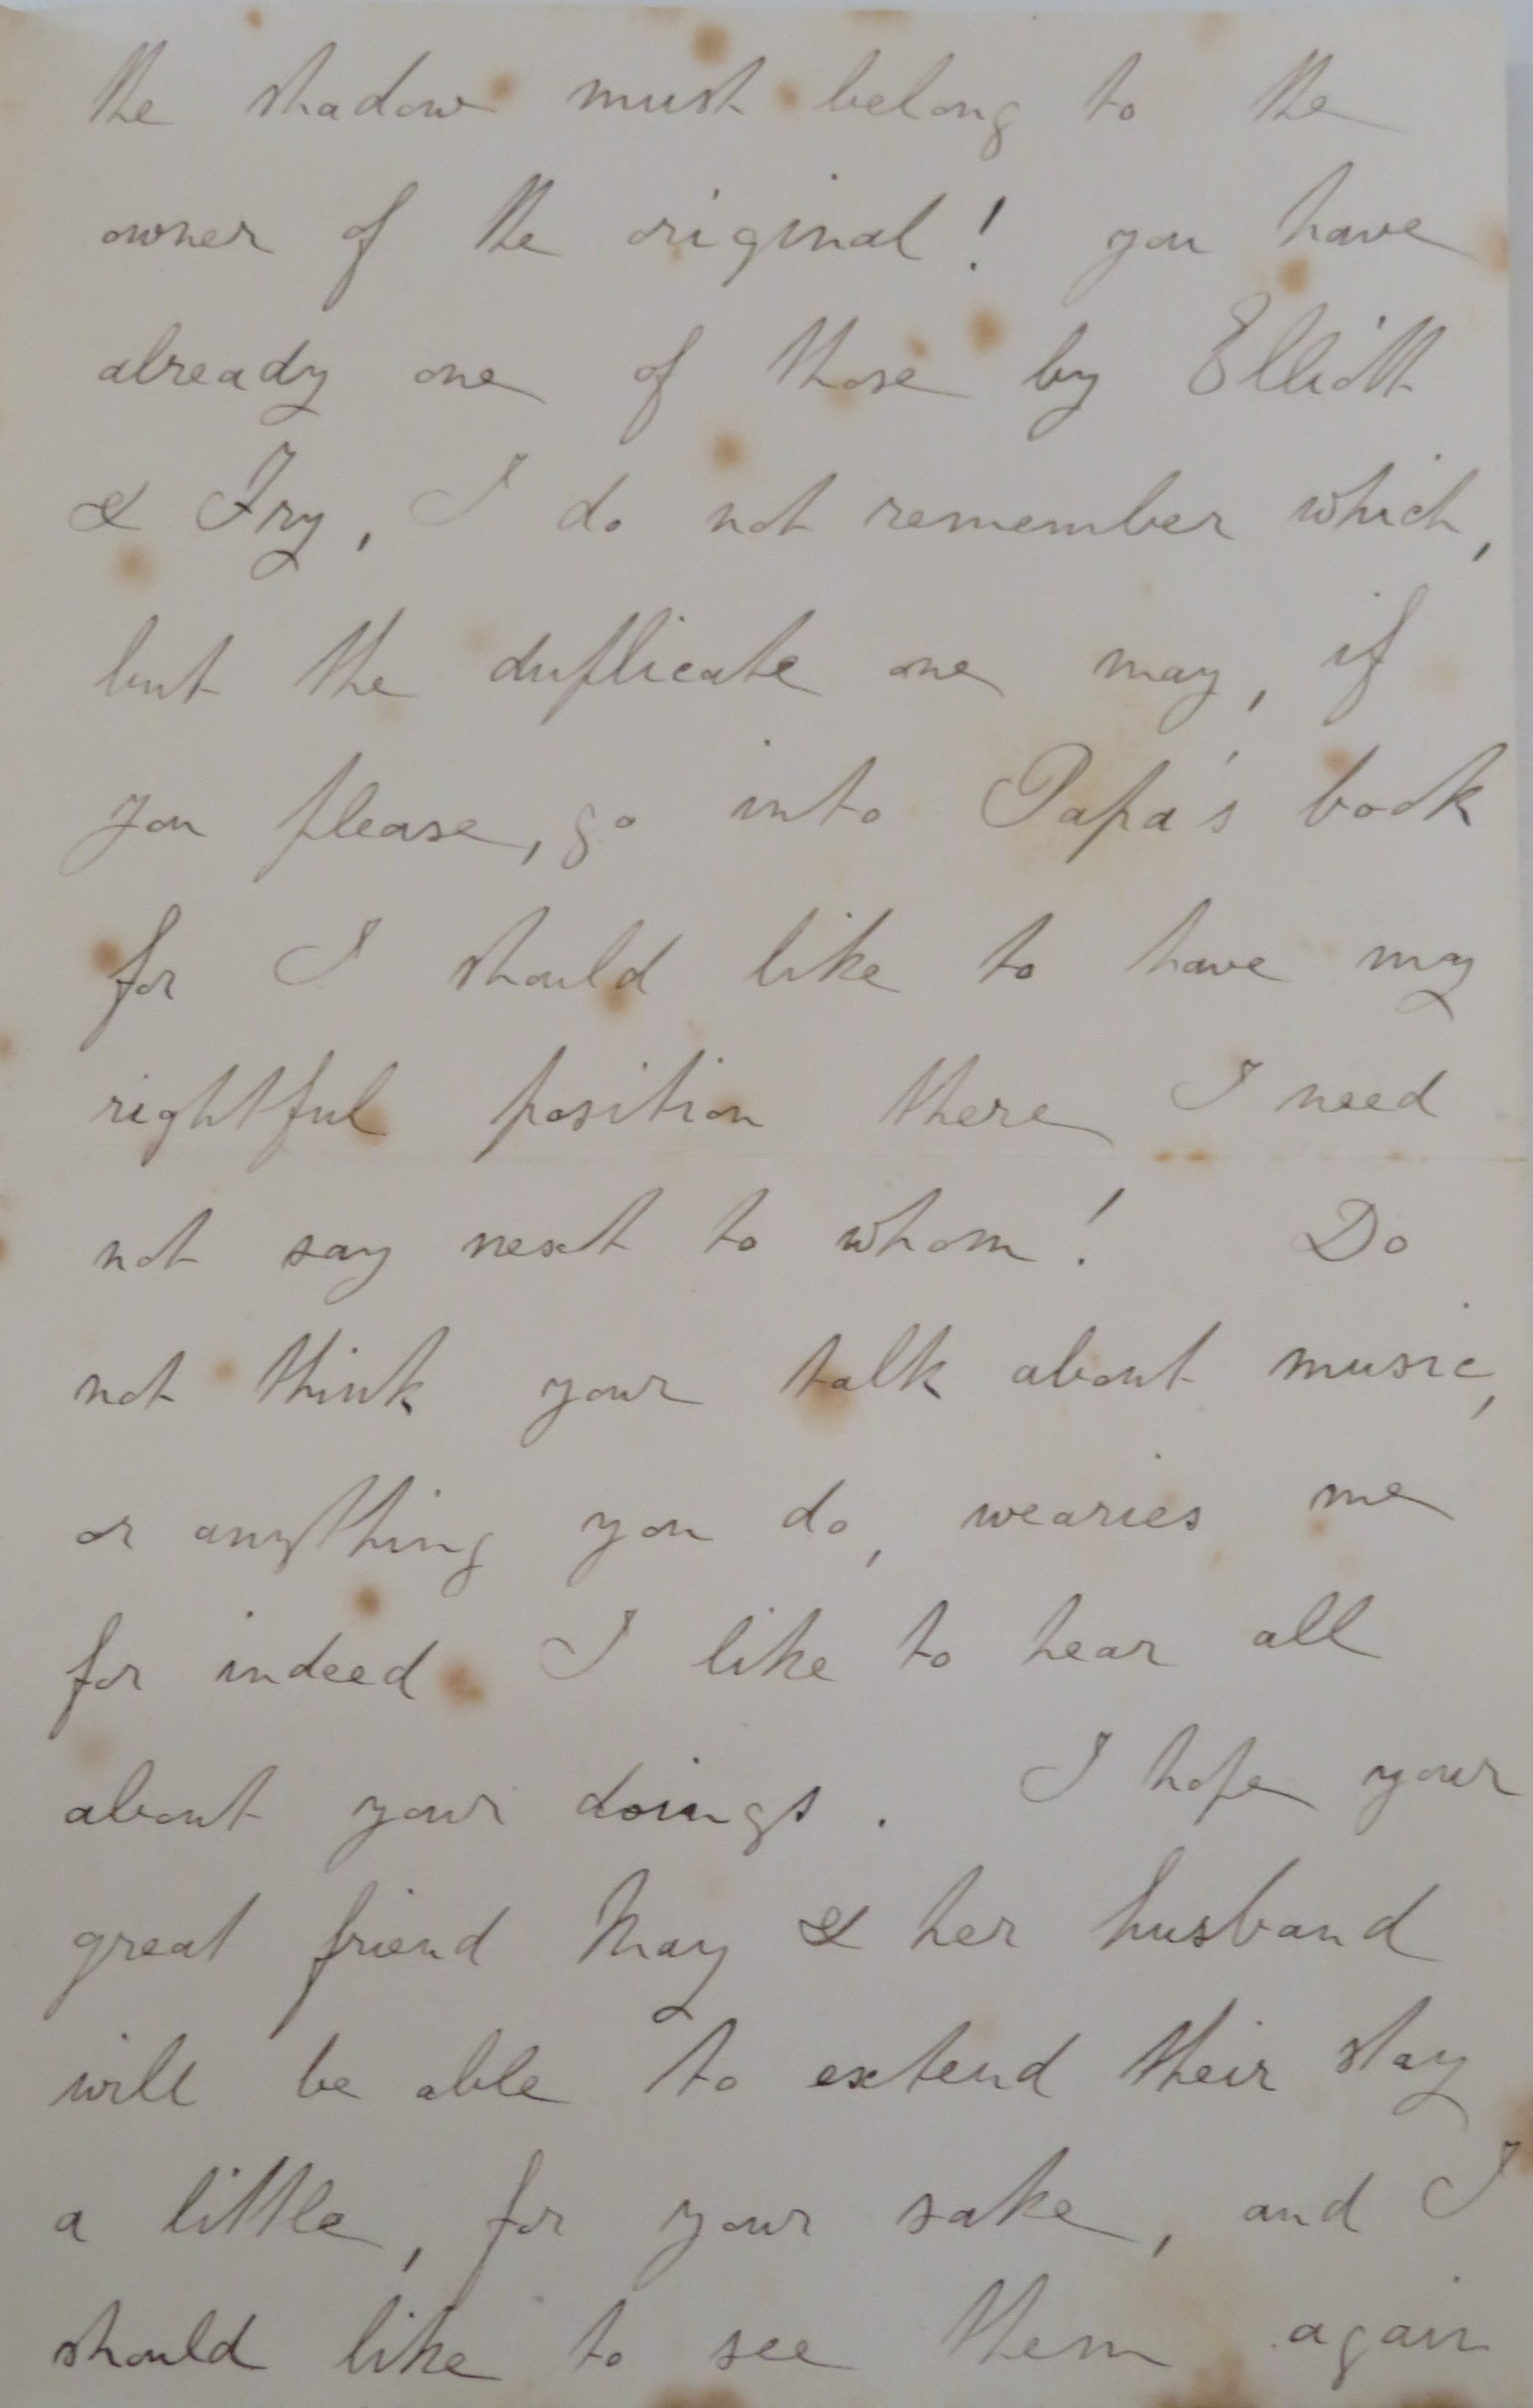 the shadow must belong to the
owner of the original! you have
already one of those by Elliott
& Fry, I do not remember which,
but the duplicate one may, if
you please, go into Papa's book
for I should like to have my
rightful position there I need
not say next to whom! Do
not think your talk about music,
or anything you do, wearies me
for indeed I like to hear all
about your doings. I hope your
great friend May & her husband
will be able to extend their stay
a little, for your sake, and I
should like to see them again